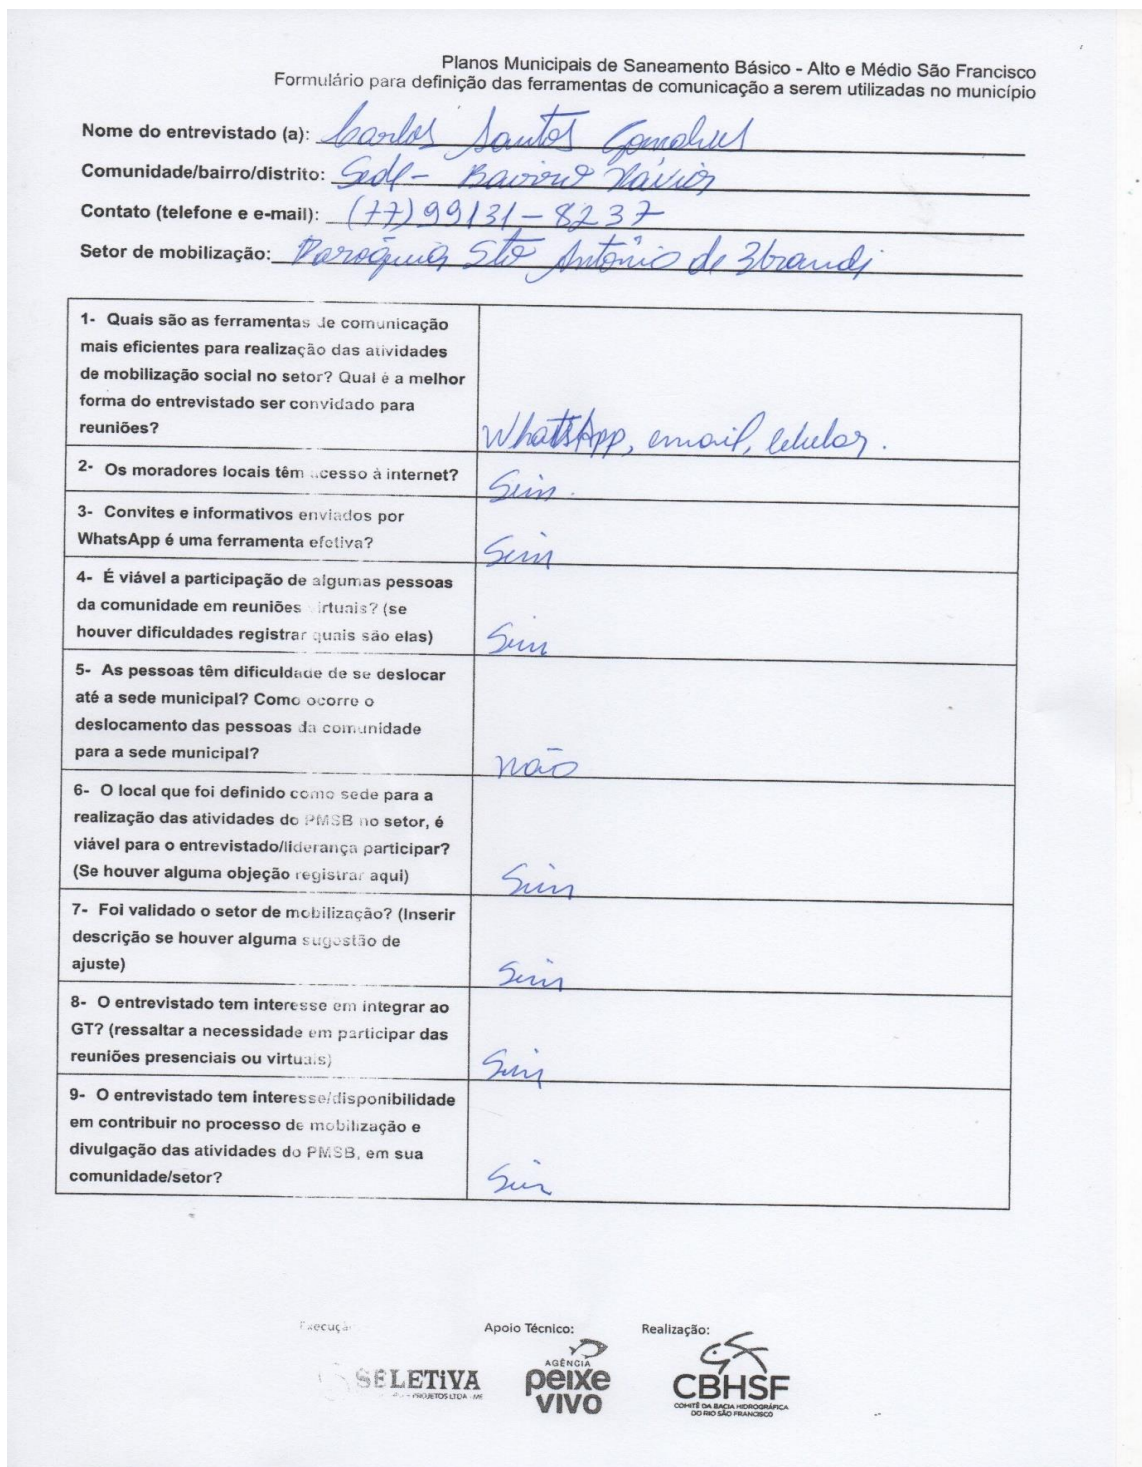 Planos Municipais de Saneamento Básico - Alto e Médio São Francisco
Formulário para definição das ferramentas de comunicação a serem utilizadas no município
Nome do entrevistado (a): Carlos Santos Gonçalves
Comunidade/bairro/distrito: Sede - Bairro Xavier
Contato (telefone e e-mail): (77) 99131-8237
Setor de mobilização: Paróquia Sto Antônio de
1- Quais são as ferramentas de comunicação
mais eficientes para realização das atividades
de mobilização social no setor? Qual é a melhor
forma do entrevistado ser convidado para
reuniões?
WhatsApp, email, celular.
2- Os moradores locais têm acesso à internet?
Sim.
3- Convites e informativos enviados por
WhatsApp é uma ferramenta efetiva?
Sim
4- É viável a participação de algumas pessoas
da comunidade em reuniões virtuais? (se
houver dificuldades registrar quais são elas)
Sim
5- As pessoas têm dificuldade de se deslocar
até a sede municipal? Como ocorre o
deslocamento das pessoas da comunidade
para a sede municipal?
não
6- O local que foi definido como sede para a
realização das atividades do PMSB no setor, é
viável para o entrevistado/liderança participar?
(Se houver alguma objeção registrar aqui)
Sim
7- Foi validado o setor de mobilização? (Inserir
descrição se houver alguma sugestão de
ajuste)
Sim
8- O entrevistado tem interesse em integrar ao
GT? (ressaltar a necessidade em participar das
reuniões presenciais ou virtuais)
Sim
9- O entrevistado tem interesse/disponibilidade
em contribuir no processo de mobilização e
divulgação das atividades do PMSB, em sua
comunidade/setor?
Sim
Execução
Apoio Técnico:
Realização:
SELETIVA
PROJETOS LTDA - ME
AGÊNCIA
peixe
vivo
CBHSF
COMITÊ DA BACIA HIDROGRÁFICA
DO RIO SÃO FRANCISCO